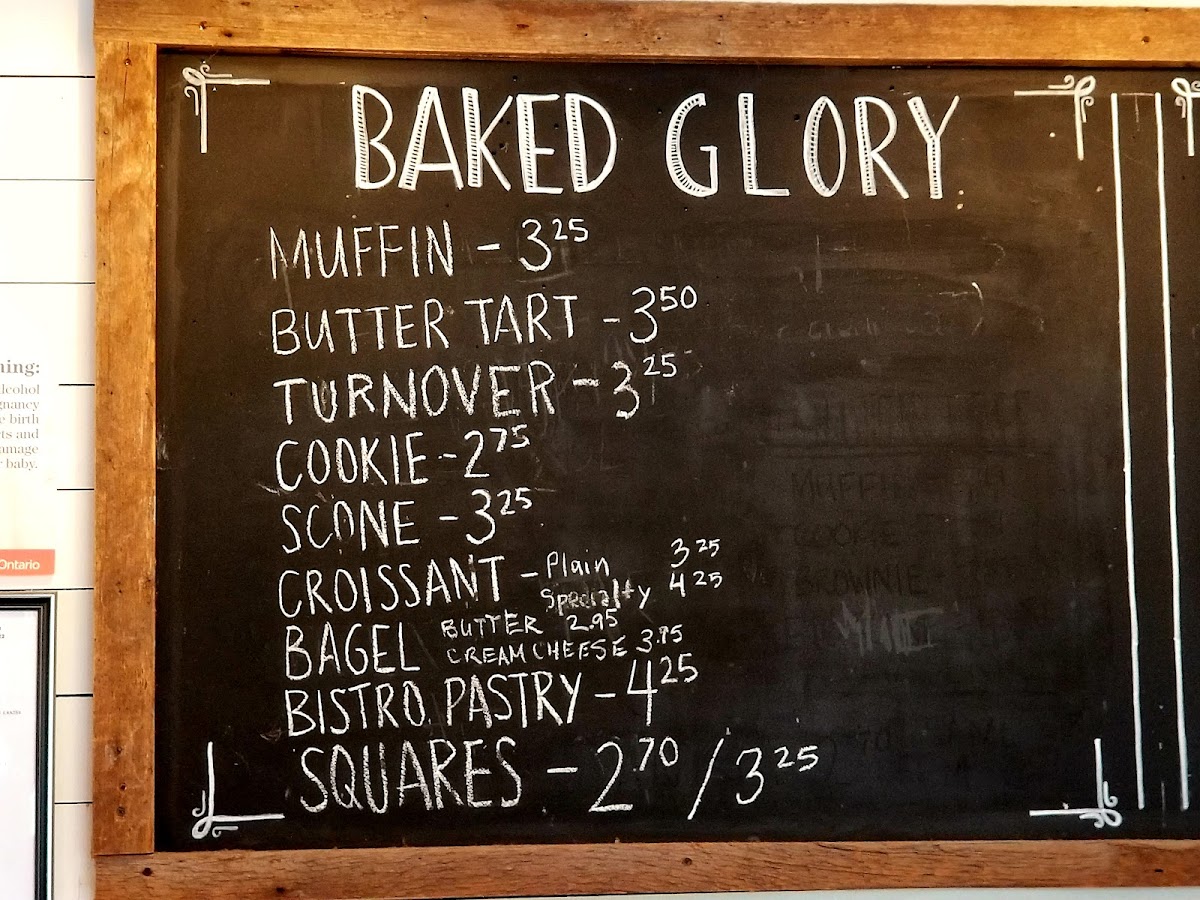 BAKED GLORY
MUFFIN - 3 25
BUTTER TART - 3 50
TURNOVER - 3 25
COOKIE - 2 75
SCONE - 3 25
CROISSANT - Plain 3 25
Specialty 4 25
BAGEL BUTTER 2.95
CREAM CHEESE 3.95
BISTRO PASTRY - 4 25
SQUARES - 2 70 / 3 25
ning:
lcohol
gnancy
e birth
ts and
amage
baby.
Ontario
MUFFIN
COOKIE
BROWNIE